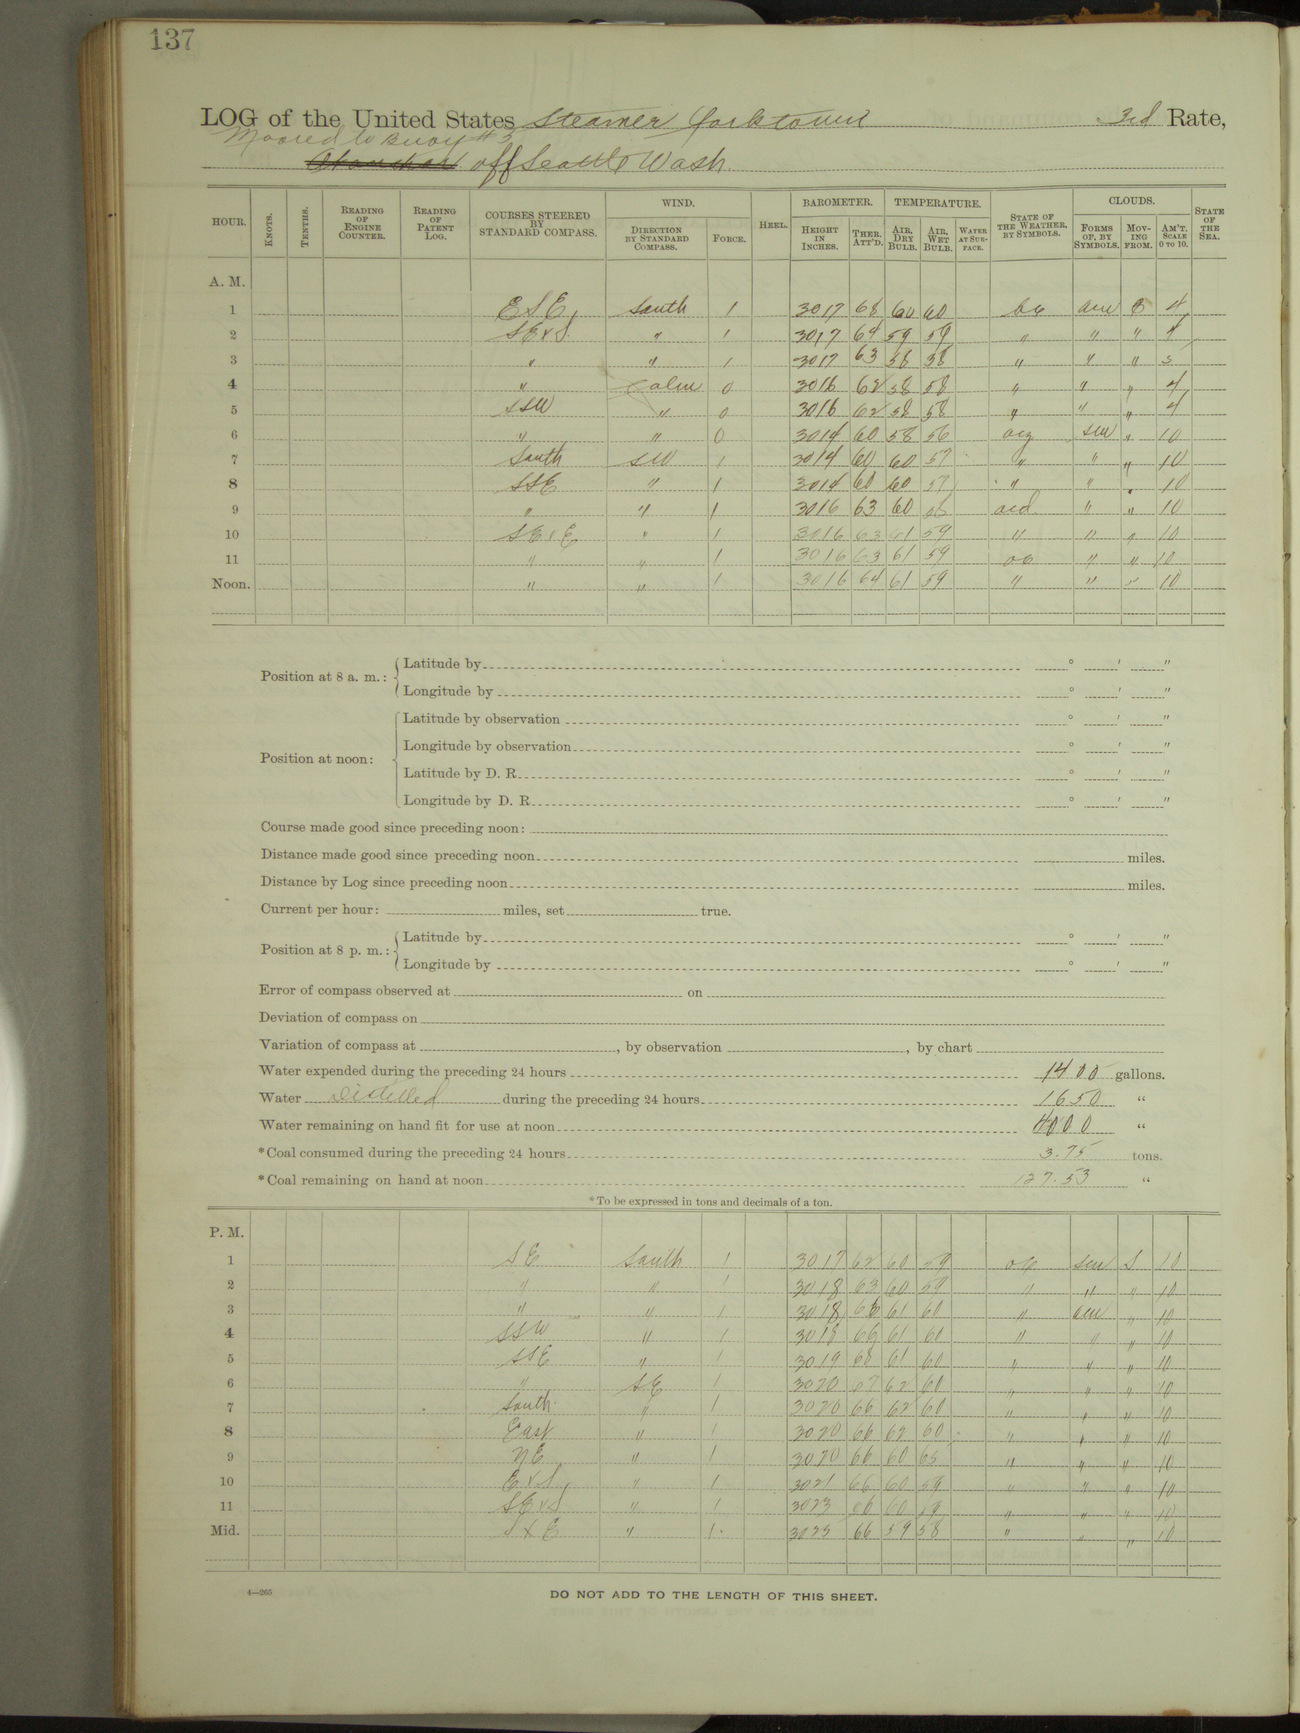 137
LOG of the United States Steamer Yorktown 3rd Rate,
Moored to Buoy # 3
At anchor off Seattle Wash.
HOUR. KNOTS. TENTHS. READING OF ENGINE COUNTER. READING OF PATENT LOG. COURSES STEERED BY STANDARD COMPASS. WIND. DIRECTION BY STANDARD COMPASS. FORCE. HEEL. BAROMETER. HEIGHT IN INCHES. THER. ATT'D. TEMPERATURE. AIR, DRY BULB. AIR, WET BULB. WATER AT SURFACE. STATE OF THE WEATHER, BY SYMBOLS. CLOUDS. FORMS OF, BY SYMBOLS. MOVING FROM. AM'T, SCALE 0 TO 10. STATE OF THE SEA.
A. M.
1 ESE South 1 3017 68 60 60 4
2 SExS " 1 3017 64 59 59 " " " 4
3 " " 1 3017 63 58 58 " " "
4 " Calm 0 3016 62 58 58 " " " 4
5 SSW " 0 3016 62 58 58 " " " 4
6 " " 0 3014 60 58 56 " 10
7 South SW 1 3014 60 60 57 " " " 10
8 SSE " 1 3014 60 60 57 " " " 10
9 " " 1 3016 63 60 " " 10
10 SExE " 1 3016 63 61 59 " " " 10
11 " " 1 3016 63 61 59 " " 10
Noon. " " 1 3016 64 61 59 " " " 10
Position at 8 a. m.: Latitude by ° ' "
Longitude by ° ' "
Position at noon: Latitude by observation ° ' "
Longitude by observation ° ' "
Latitude by D. R. ° ' "
Longitude by D. R. ° ' "
Course made good since preceding noon:
Distance made good since preceding noon miles.
Distance by Log since preceding noon miles.
Current per hour: miles, set true.
Position at 8 p. m.: Latitude by ° ' "
Longitude by ° ' "
Error of compass observed at on
Deviation of compass on
Variation of compass at , by observation , by chart
Water expended during the preceding 24 hours 1400 gallons.
Water Distilled during the preceding 24 hours 1650 "
Water remaining on hand fit for use at noon 4000 "
*Coal consumed during the preceding 24 hours 3.75 tons.
*Coal remaining on hand at noon 127.53 "
*To be expressed in tons and decimals of a ton.
P. M.
1 SE South 1 3017 62 60 59 S 10
2 " " 1 3018 63 60 59 " " " 10
3 " " 1 3018 61 60 " " 10
4 SSW " 1 3018 66 61 60 " " " 10
5 SSE " 1 3019 68 61 60 " " " 10
6 " SE 1 3020 67 62 60 " " " 10
7 South " 1 3020 66 62 60 " " " 10
8 East " 1 3020 66 62 60 " " " 10
9 NE " 1 3020 66 60 " " " 10
10 ExS " 1 3021 66 60 59 " " " 10
11 SExS " 1 3023 66 60 59 " " " 10
Mid. SxE " 1 3023 66 59 58 " " " 10
4—265
DO NOT ADD TO THE LENGTH OF THIS SHEET.